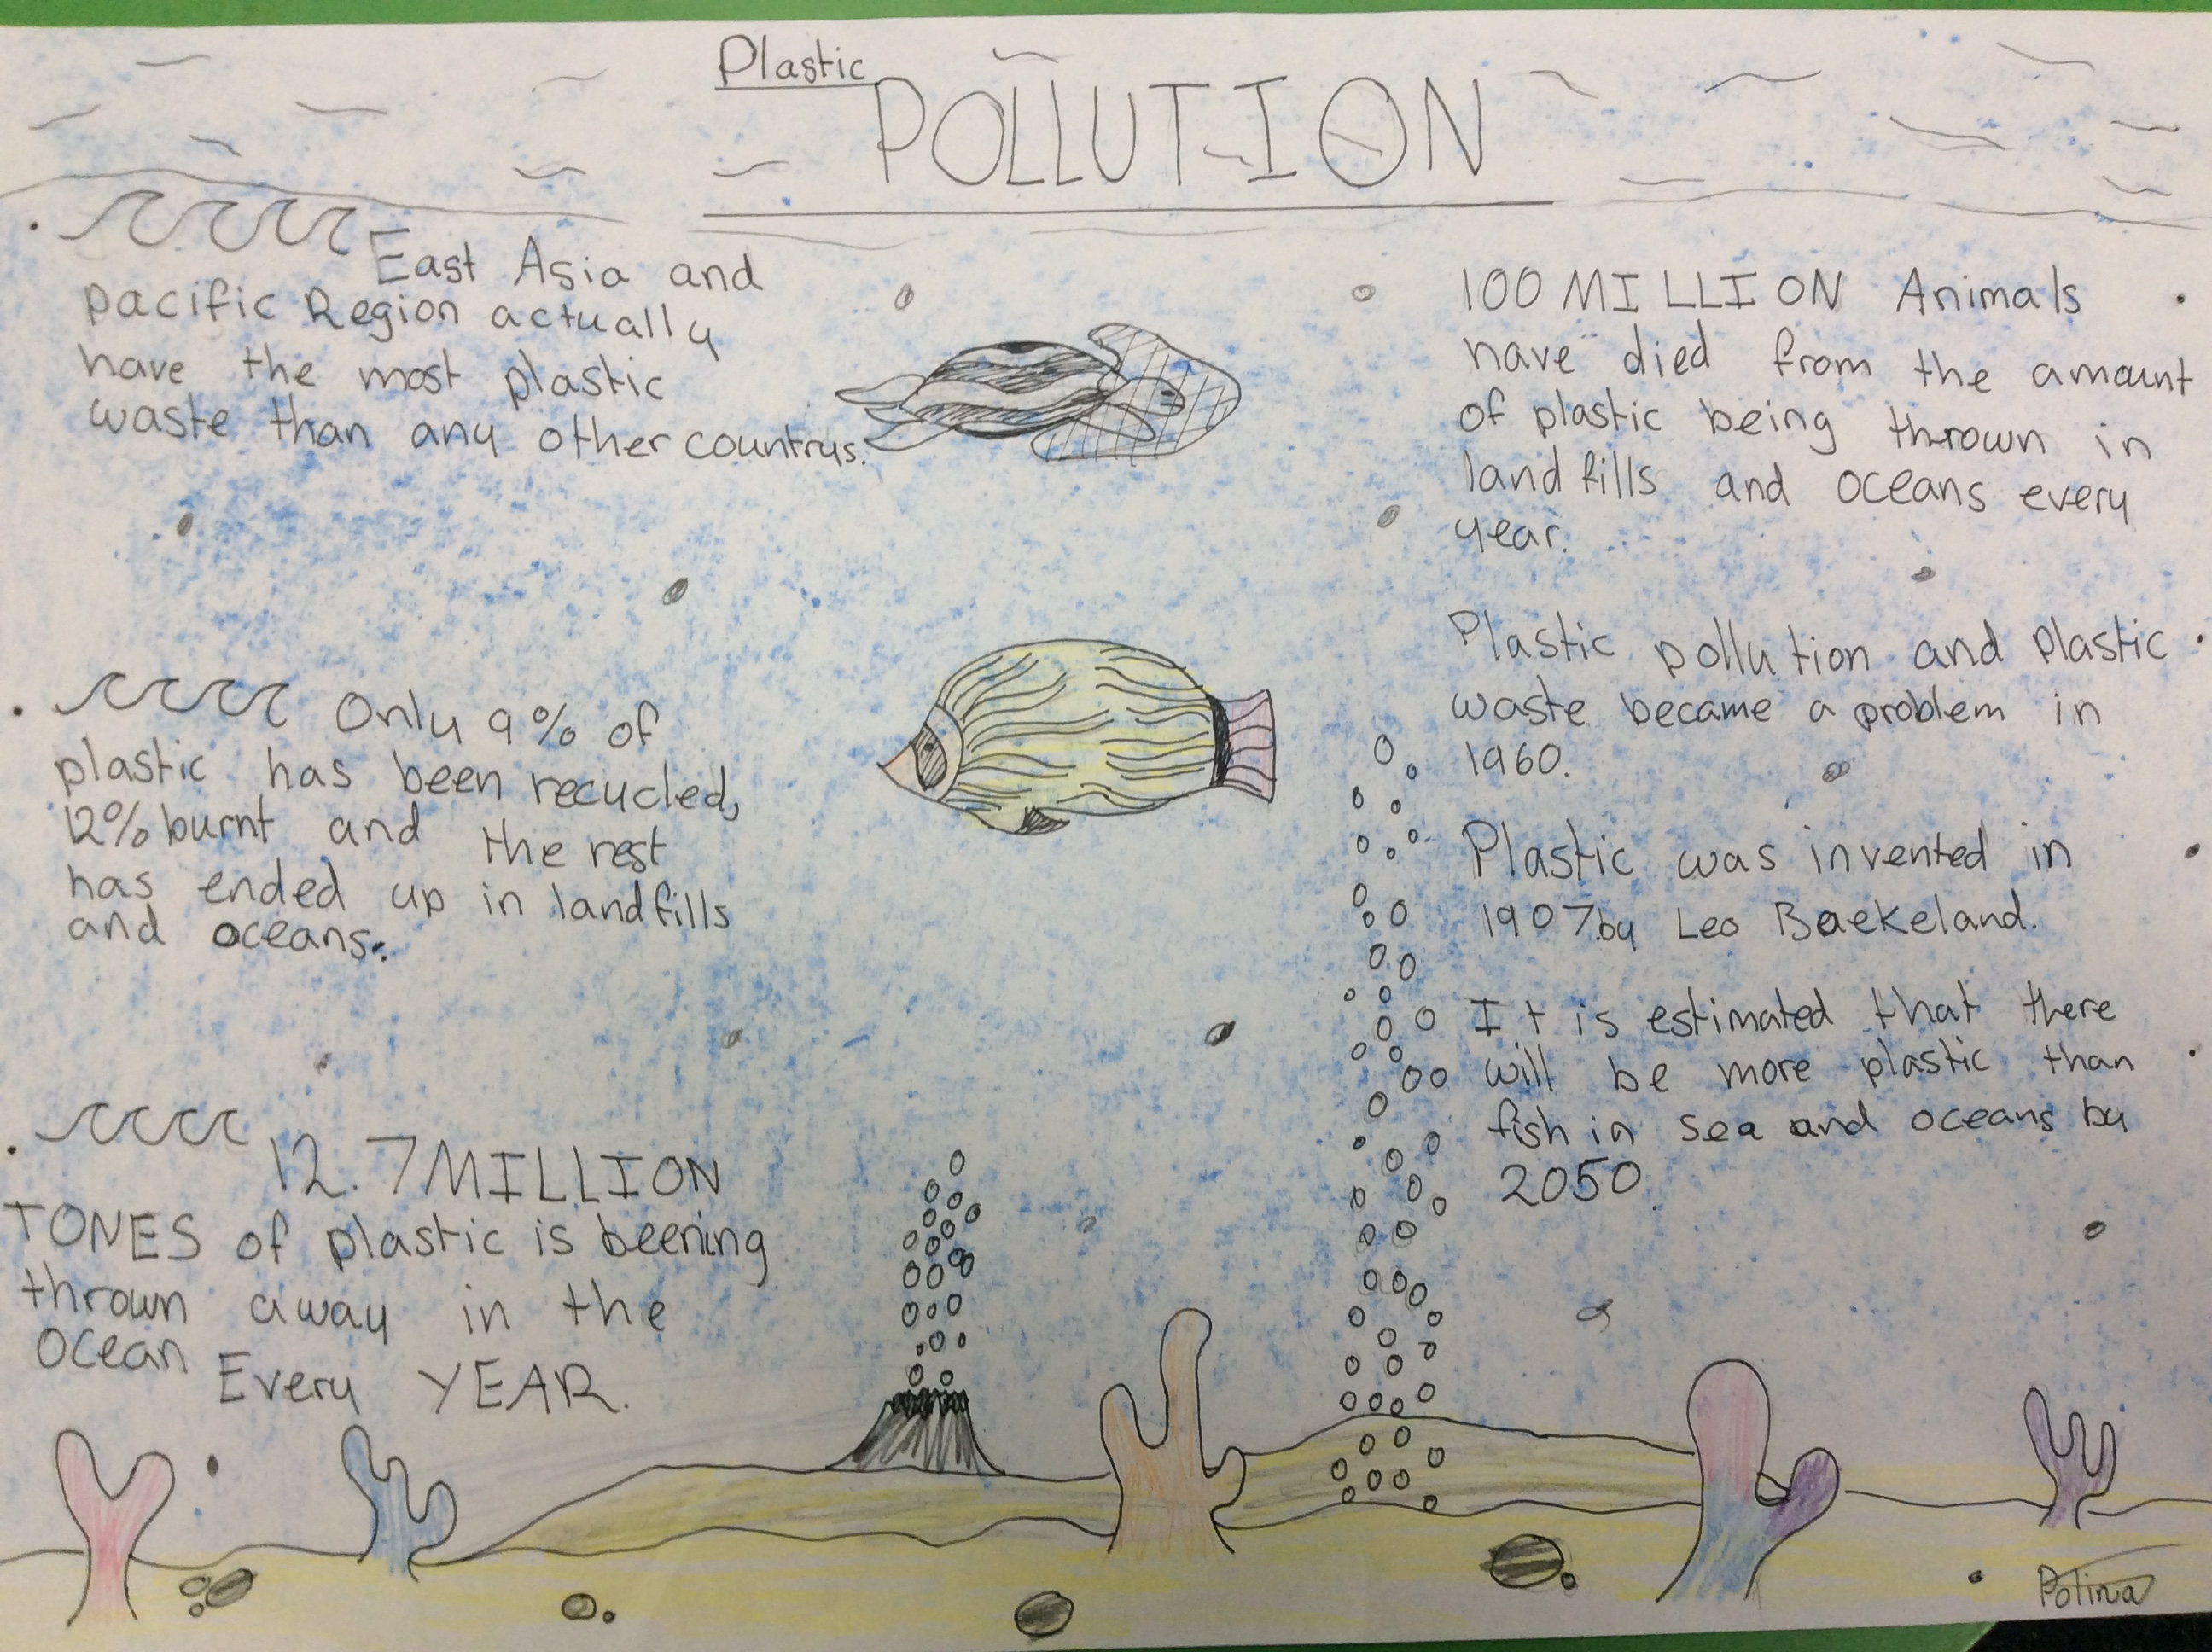 Plastic
POLLUTION
East Asia and
pacific Region actually
have the most plastic
waste than any other countrys.
Only 9% of
plastic has been recycled,
12% burnt and the rest
has ended up in landfills
and oceans.
12.7 MILLION
TONES of plastic is beening
thrown away in the
Ocean
Every YEAR.
100 MILLION Animals
have died from the amount
of plastic being thrown in
landfills and oceans every
year.
Plastic pollution and plastic
waste became a problem in
1960.
Plastic was invented in
1907.by Leo Baekeland.
It is estimated that there
will be more plastic than
fish in sea and oceans by
2050.
Polina